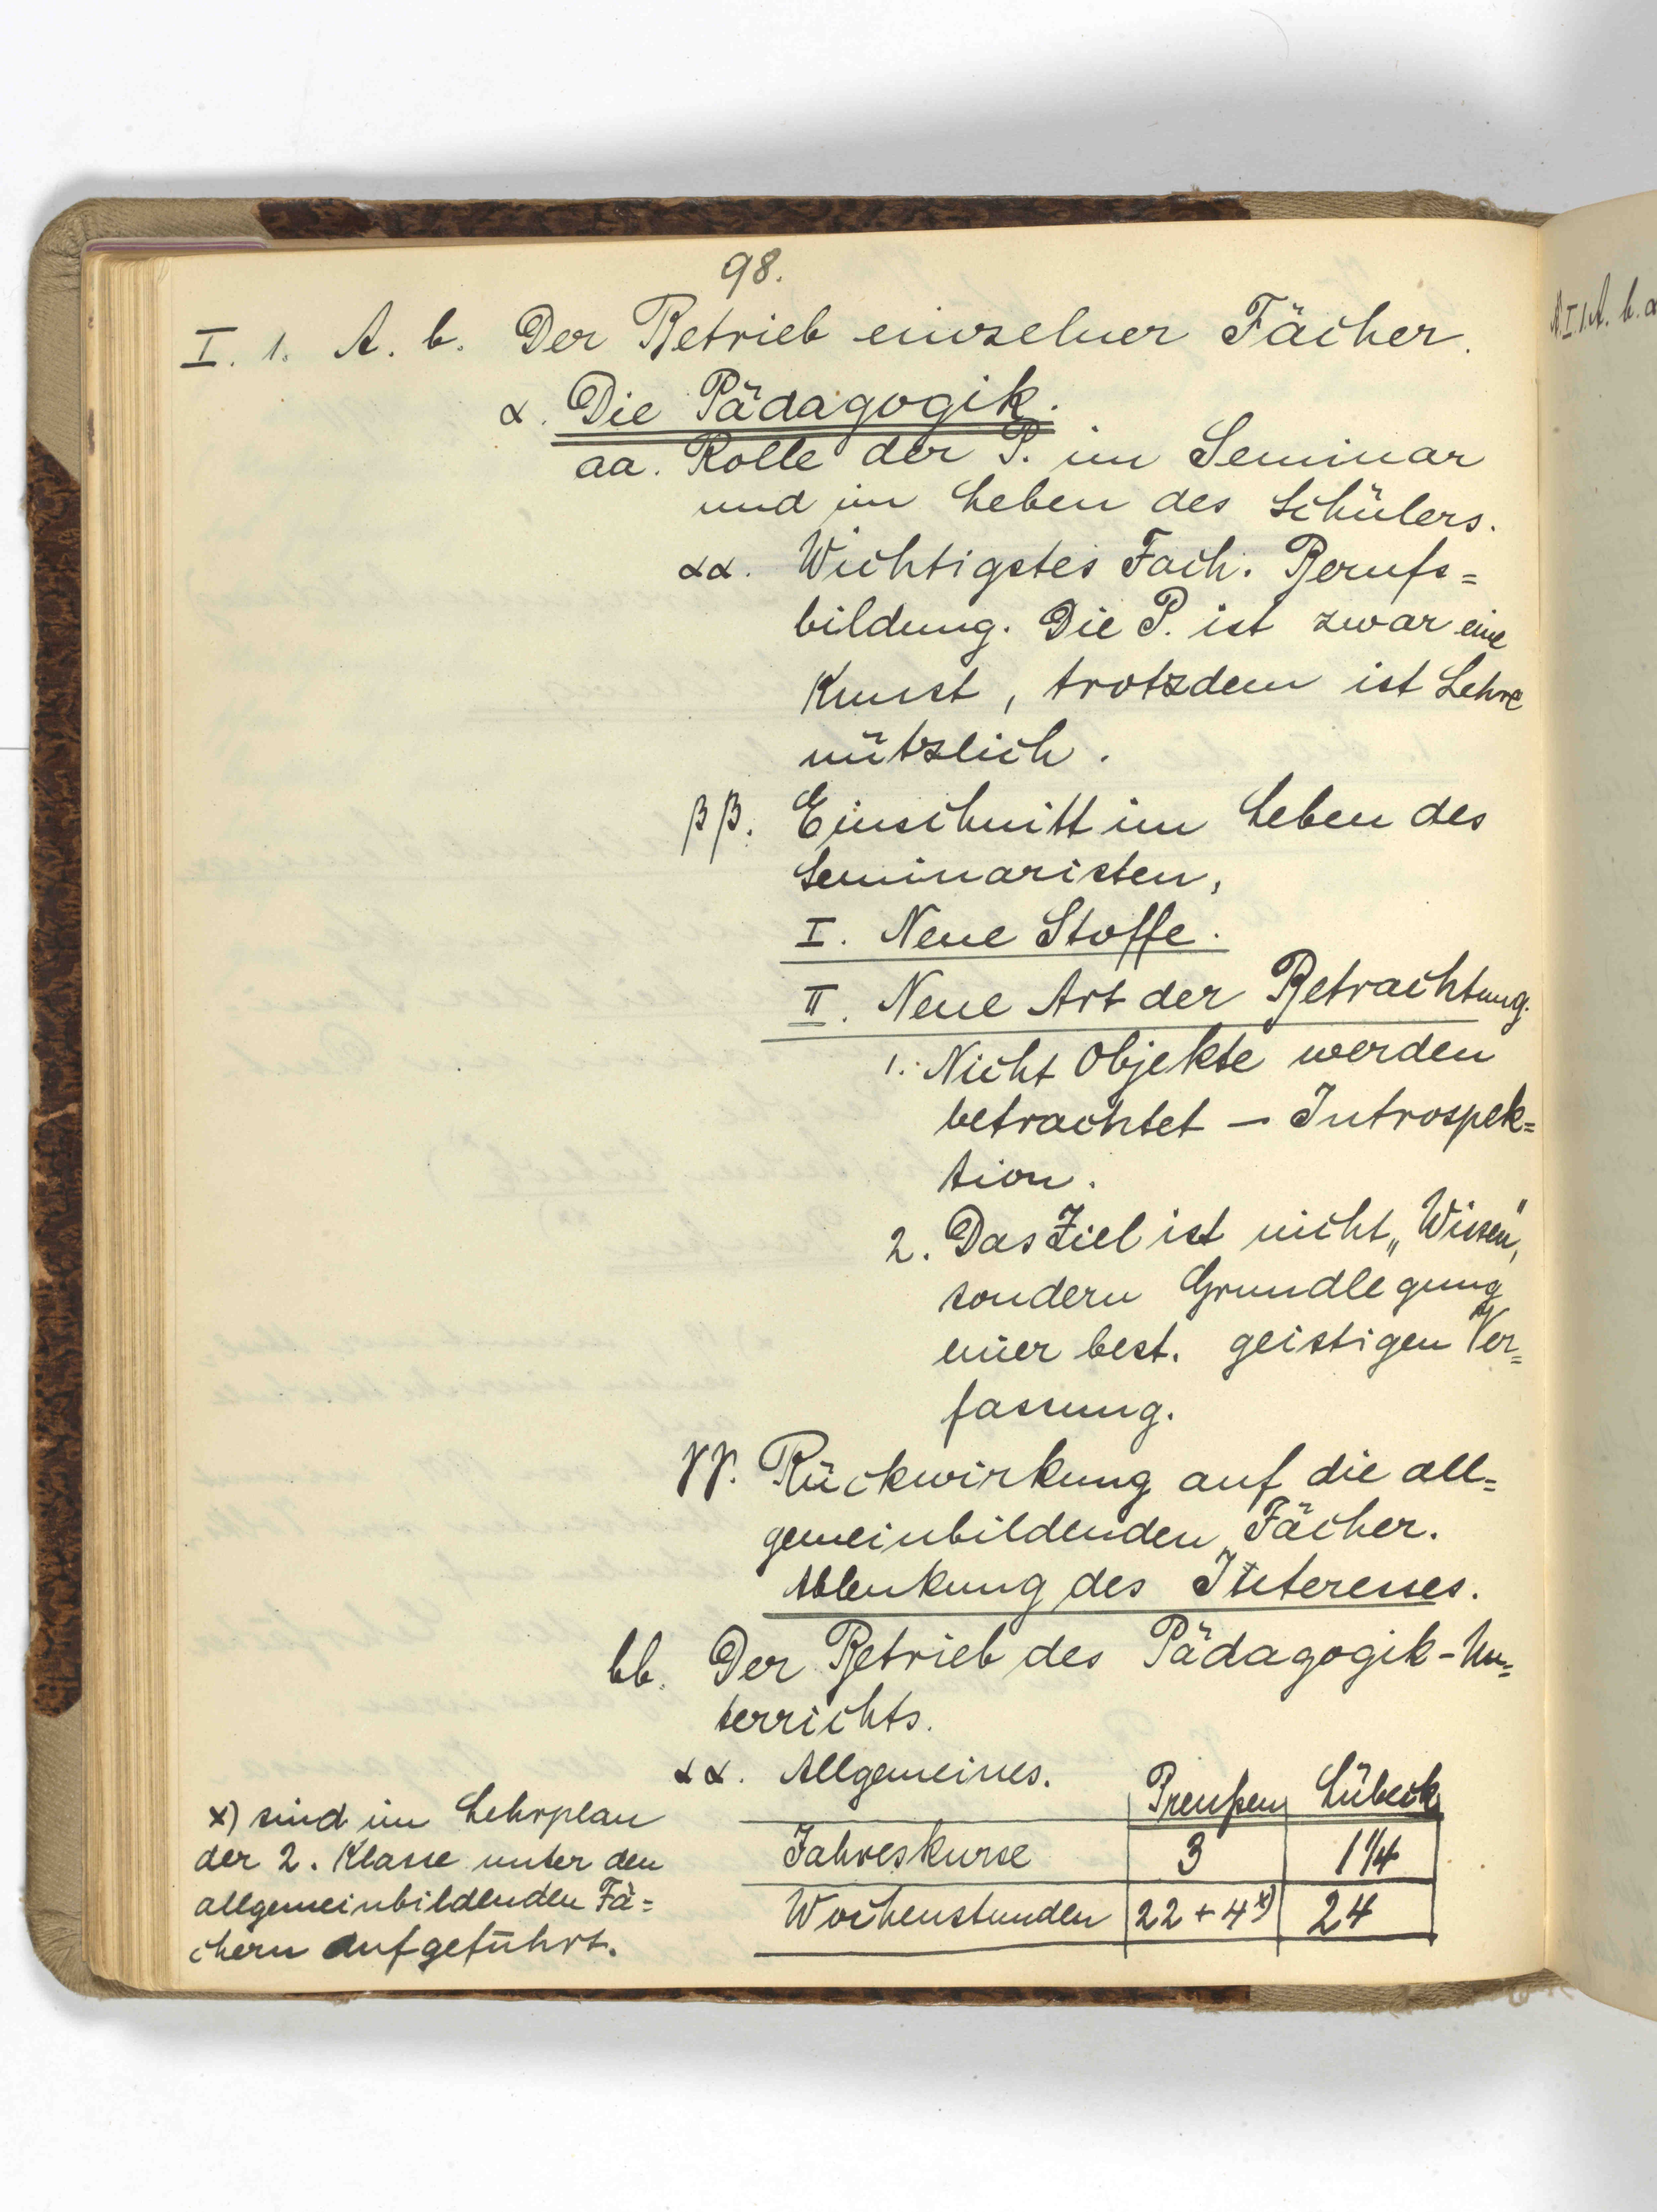 98.
I. 1. A. b. Der Betrieb einzelner Fächer.
α. Die Pädagogik.
aa. Rolle der P. im Seminar
und im Leben des Schülers.
αα. Wichtigstes Fach. Berufs=
bildung. Die P. ist zwar eine
Kunst, trotzdem ist Lehre
nützlich.
ββ. Einschnitt im Leben des
Seminaristen,
I. Neue Stoffe.
II. Neue Art der Betrachtung.
1. Nicht Objekte werden
betrachtet – Introspek=
tion.
2. Das Ziel ist nicht „Wissen",
sondern Grundlegung
einer best. geistigen Ver=
fassung.
γγ. Rückwirkung auf die all=
gemeinbildenden Fächer.
Ablenkung des Interesses.
bb. Der Betrieb des Pädagogik-Un=
terrichts.
αα. Allgemeines.
Preußen Lübeck
Jahreskurse 3 1 1/4
Wochenstunden 22 + 4 x) 24
x) sind im Lehrplan
der 2. Klasse unter den
allgemeinbildenden Fä=
chern aufgeführt.
I. 1. A. b. α